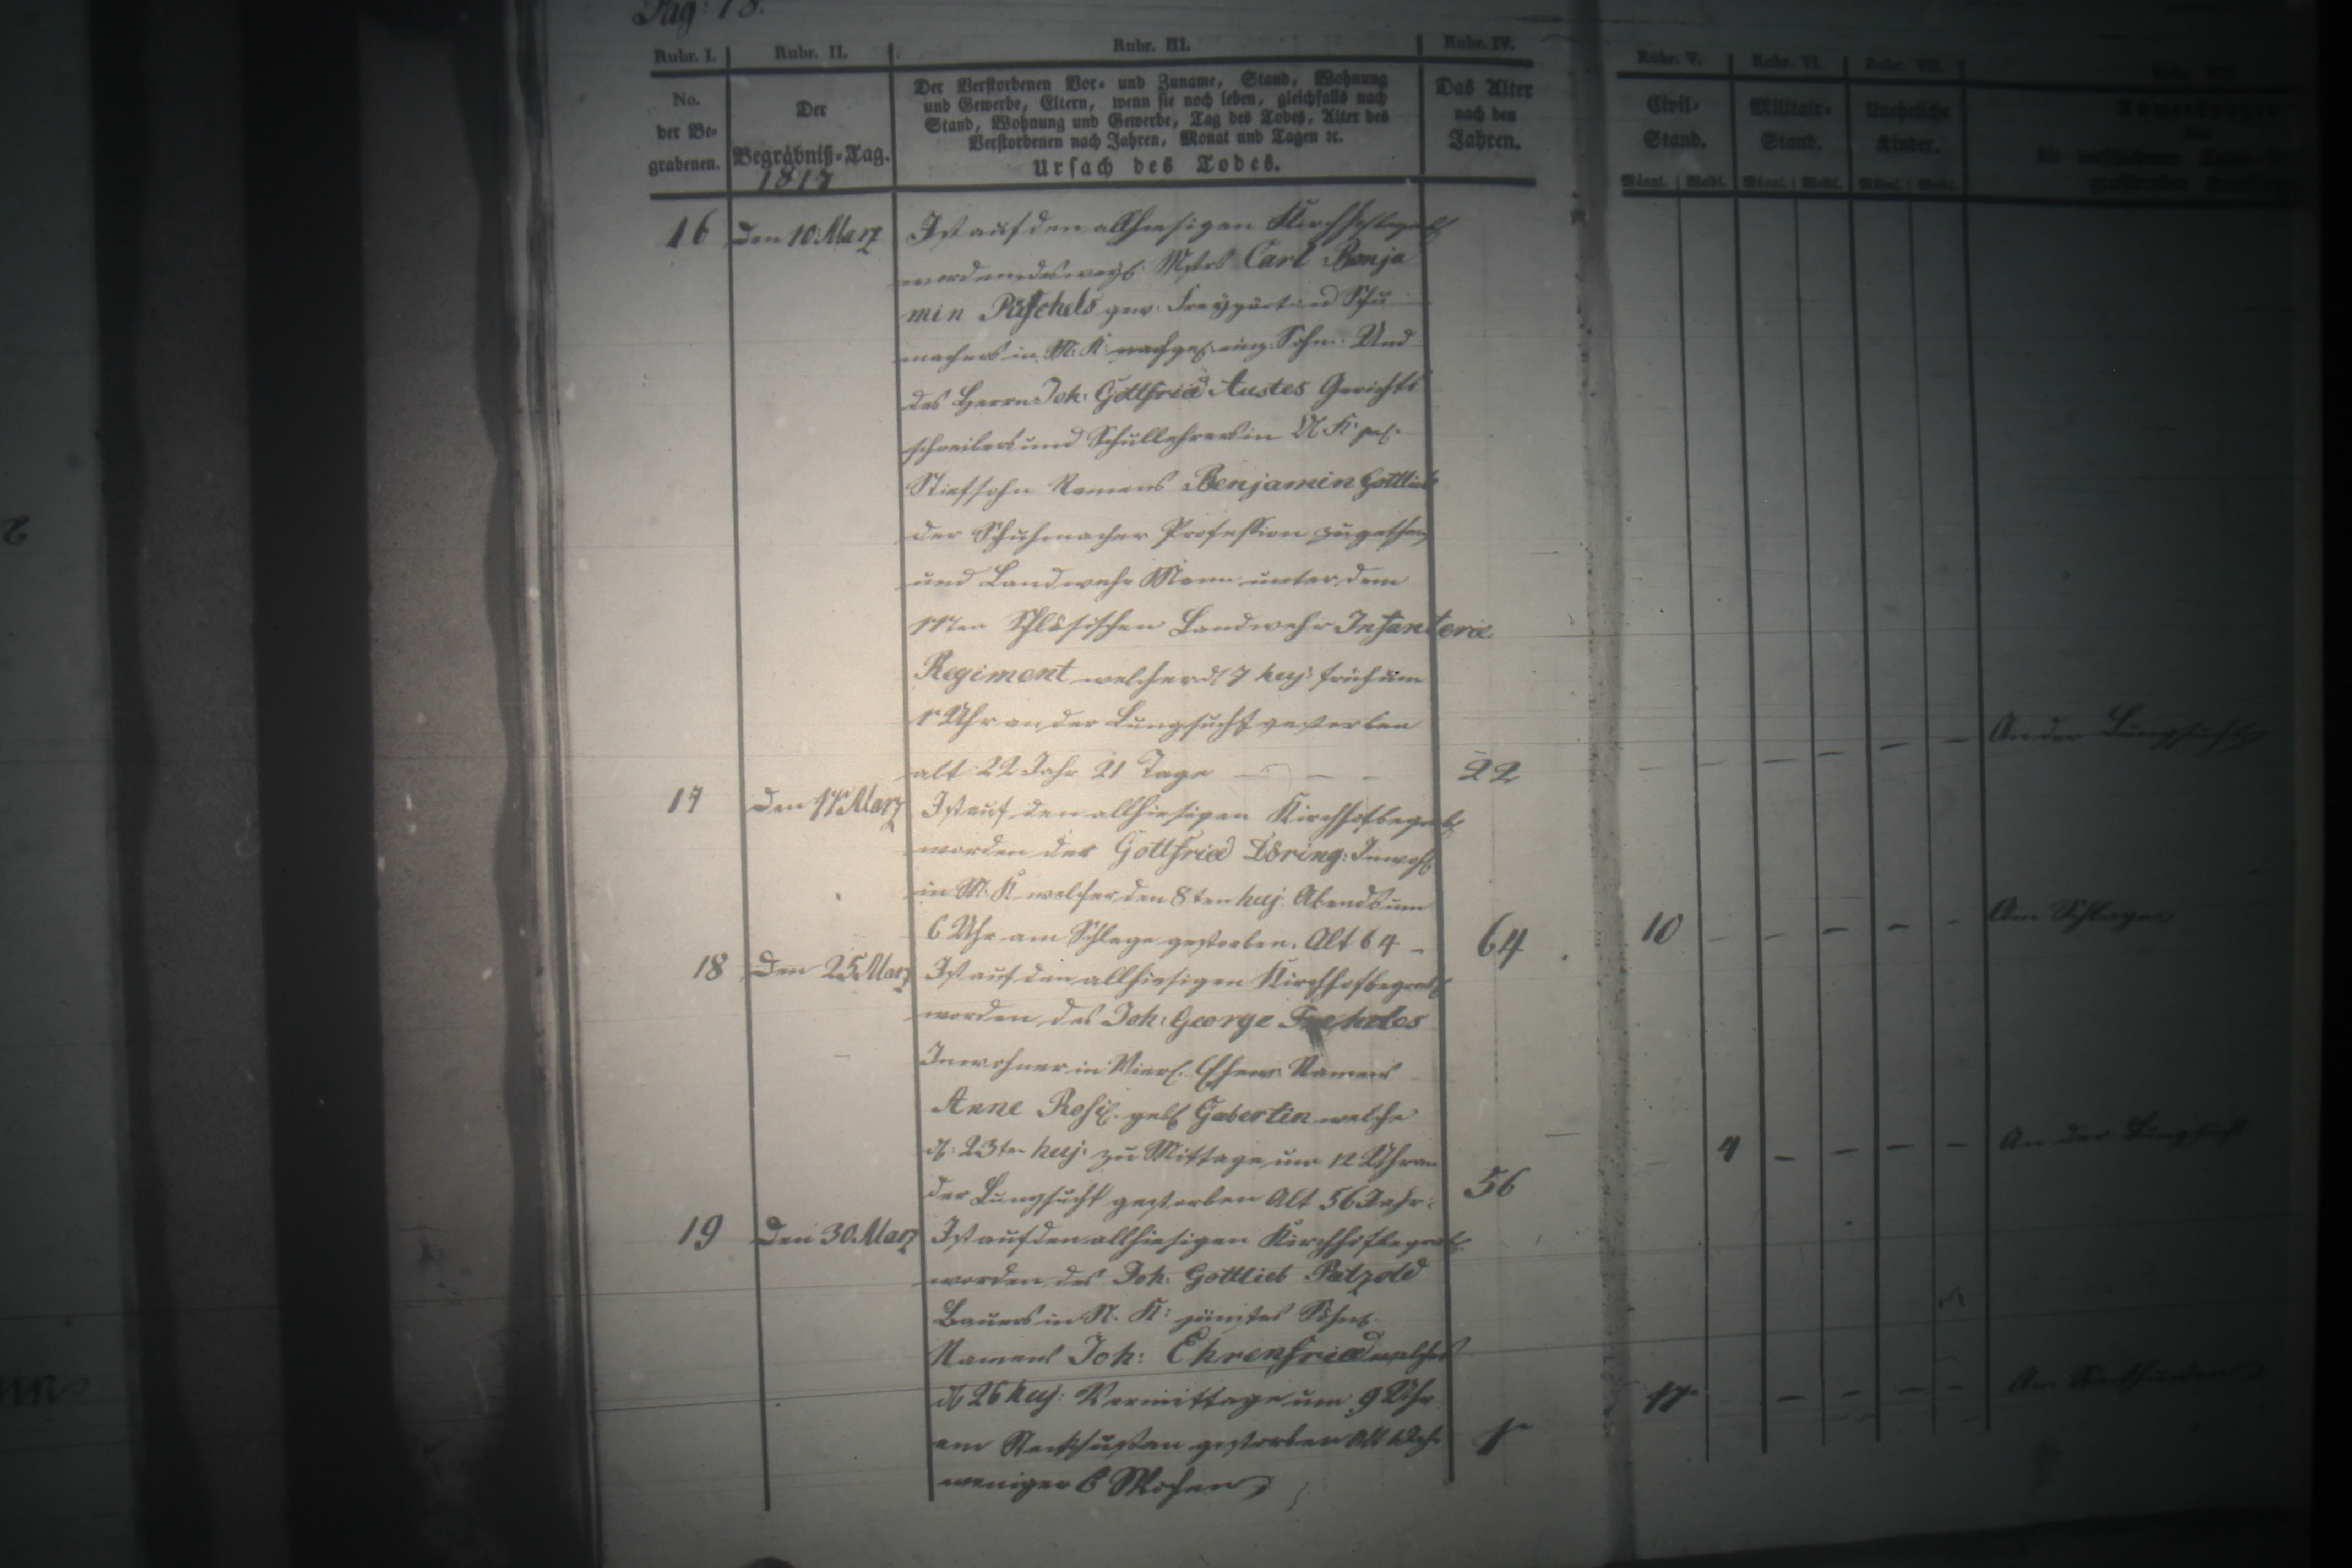 Pag: 13.
Rubr. I. Rubr. II. Rubr. III. Rubr. IV. Rubr. V. Rubr. VI. Rubr. VII.
No.
der Be-
grabenen.
Der
Begräbniß-Tag.
1817
Der Verstorbenen Vor- und Zuname, Stand, Wohnung
und Gewerbe, Eltern, wenn sie noch leben, gleichfalls nach
Stand, Wohnung und Gewerbe, Tag des Todes, Alter des
Verstorbenen nach Jahren, Monat und Tagen ꝛc.
Ursach des Todes.
Das Alter
nach den
Jahren.
Civil-
Stand.
Militair-
Stand.
Uneheliche
Kinder.
Männl. Weibl. Männl. Weibl. Männl. Weibl.
16 Den 10 Marz Ist auf den allhiesigen Kirchhof begrab
worden des Mstrs Carl Benja
min Püschels gew. Freygärt. u Schu
machers in M. K. nachgel. einz. Sohn. Und
des Herrn Joh: Gottfried Austes Gerichts
schreibers und Schullehrers in N. K.
Stiefsohn Namens Benjamin Gottlieb
der Schuhmacher Profession zugethan
und Landwehr Mann unter dem
11ten Schlesischen Landwehr Infanterie
Regiment welcher d 7 huj: früh um
1 Uhr an der Lungsucht gestorben
alt 22 Jahr 21 Tage — — — 22 — — — — — — An der Lungsucht
17 Den 11 Marz Ist auf den allhiesigen Kirchhof begrab
worden der Gottfried Döring: Inwoh
in M. K welcher den 8ten huj. Abends um
6 Uhr am Schlage gestorben. Alt 64 — 64 10 — — — — — Am Schlage
18 Den 25 Marz Ist auf den allhiesigen Kirchhof begrab
worden des Joh: George
Inwohner in Ehew. Namens
Anne Rosi. geb Gebertin welche
d. 23ten huj: zu Mittage um 12 Uhr an
der Lungsucht gestorben Alt 56 Jahr. 56 — 4 — — — — An der Lungsucht
19 Den 30 Marz Ist auf den allhiesigen Kirchhof begrab
worden des Joh: Gottlieb Patzold
Bauers in N. K: jüngstes Söhnl
Namens Joh: Ehrenfried welches
d 26 huj: Vormittage um 9 Uhr
am Steckhusten gestorben Alt 1 Jahr 1 11 — — — — —
weniger 6 Wochen